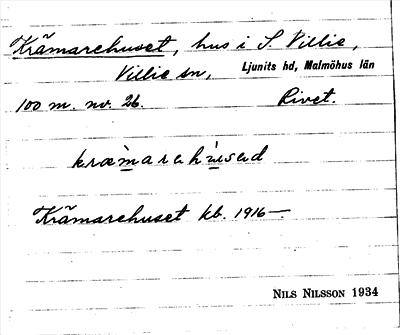 Krämarehuset, hus i S. Villie,
Villie sn, Ljunits hd, Malmöhus län
100 m. nv. 26. Rivet.
Krämarehuset kb. 1916—.
NILS NILSSON 1934